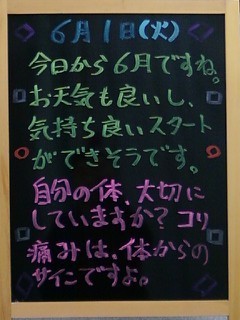 6月1日(火)
今日から6月ですね。
お天気も良いし、
気持ち良いスタート
ができそうです。
自分の体、大切に
していますか？コリ
痛みは、体からの
サインですよ。